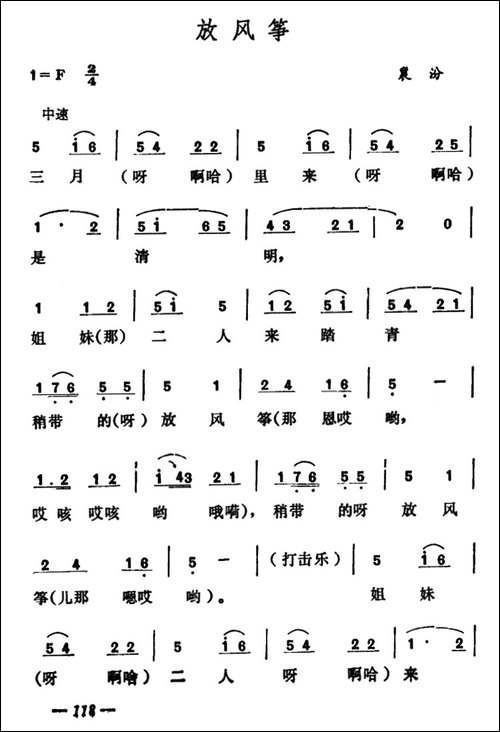 放风筝
1=F 2/4 襄汾
中速
5 i6 | 54 22 | 5 i6 | 54 25 |
三月 (呀 啊哈) 里来 (呀 啊哈)
1· 2 | 5i 65 | 43 21 | 2 0
是 清 明,
1 12 | 5i 5 | 12 5i | 54 21 |
姐 妹(那) 二 人 来 踏 青
176 55 | 5 1 | 24 16 | 5 — |
稍带 的(呀) 放 风 筝(那 恩哎 哟,
1.2 12 | i43 21 | 176 55 | 5 1 |
哎咳 哎咳 哟 哦嗬), 稍带 的呀 放风
2 4 16 | 5 — | (打击乐) | 5 i6 |
筝(儿那 嗯哎 哟)。 姐 妹
54 22 | 5 i6 | 54 22 | i· 2 |
(呀 啊哈) 二 人 呀 啊哈) 来
— 118 —